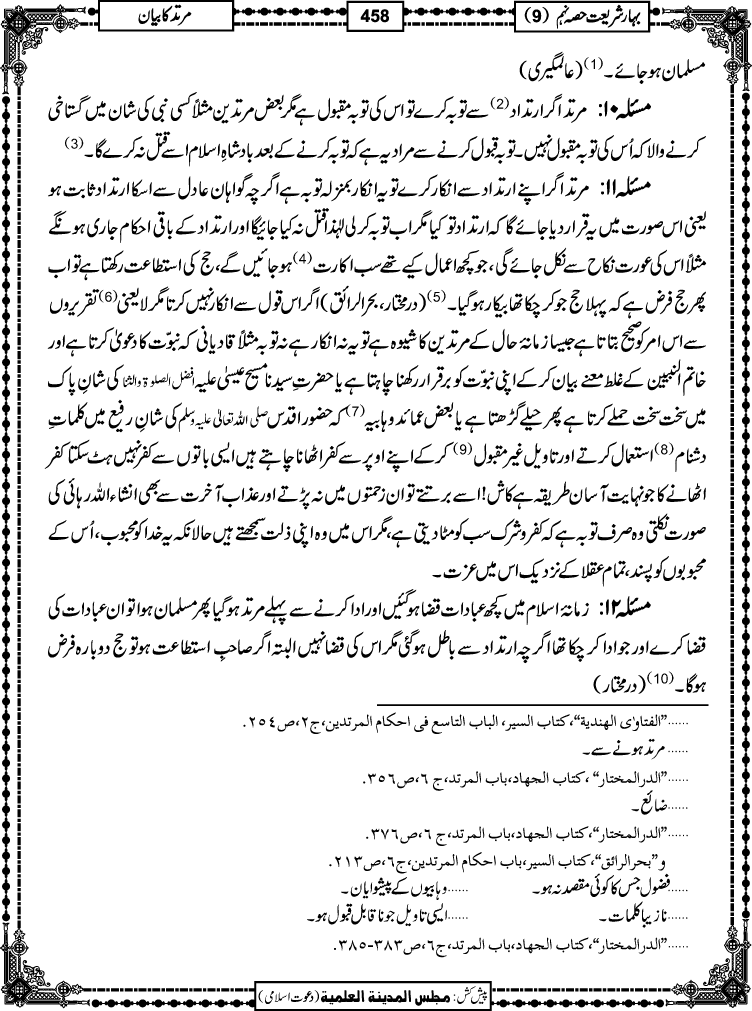 بہار شریعت حصہ نہم (9)
458
مرتد کا بیان
مسلمان ہو جائے۔(1) (عالمگیری)
مسئلہ ۱۰: مرتد اگر ارتداد(2) سے توبہ کرے تو اس کی توبہ مقبول ہے مگر بعض مرتدین مثلاً کسی نبی کی شان میں گستاخی
کرنے والا کہ اُس کی توبہ مقبول نہیں۔ توبہ قبول کرنے سے مراد یہ ہے کہ توبہ کرنے کے بعد بادشاہِ اسلام اسے قتل نہ کرے گا۔(3)
مسئلہ ۱۱: مرتد اگر اپنے ارتداد سے انکار کرے تو یہ انکار بمنزلہ توبہ ہے اگرچہ گواہان عادل سے اسکا ارتداد ثابت ہو
یعنی اس صورت میں یہ قرار دیا جائے گا کہ ارتداد تو کیا مگر اب توبہ کرلی لہٰذا قتل نہ کیا جائیگا اور ارتداد کے باقی احکام جاری ہونگے
مثلاً اس کی عورت نکاح سے نکل جائے گی، جو کچھ اعمال کیے تھے سب اکارت(4) ہو جائیں گے، حج کی استطاعت رکھتا ہے تو اب
پھر حج فرض ہے کہ پہلا حج جو کر چکا تھا بیکار ہوگیا۔(5) (درمختار، بحرالرائق) اگر اس قول سے انکار نہیں کرتا مگر لایعنی(6) تقریروں
سے اس امر کو صحیح بتاتا ہے جیسا زمانۂ حال کے مرتدین کا شیوہ ہے تو یہ نہ انکار ہے نہ توبہ مثلاً قادیانی کہ نبوّت کا دعویٰ کرتا ہے اور
خاتم النبیین کے غلط معنے بیان کرکے اپنی نبوّت کو برقرار رکھنا چاہتا ہے یا حضرت سیدنا مسیح عیسیٰ علیہ افضل الصلوۃ والثنا کی شانِ پاک
میں سخت سخت حملے کرتا ہے پھر حیلے گڑھتا ہے یا بعض عمائد وہابیہ(7) کہ حضور اقدس صلی اللہ تعالٰی علیہ وسلم کی شانِ رفیع میں کلماتِ
دشنام(8) استعمال کرتے اور تاویل غیر مقبول(9) کرکے اپنے اوپر سے کفر اٹھانا چاہتے ہیں ایسی باتوں سے کفر نہیں ہٹ سکتا کفر
اٹھانے کا جو نہایت آسان طریقہ ہے کاش! اسے برتتے تو ان زحمتوں میں نہ پڑتے اور عذاب آخرت سے بھی انشاء اللہ رہائی کی
صورت نکلتی وہ صرف توبہ ہے کہ کفر و شرک سب کو مٹا دیتی ہے، مگر اس میں وہ اپنی ذلت سمجھتے ہیں حالانکہ یہ خدا کو محبوب، اُس کے
محبوبوں کو پسند، تمام عقلا کے نزدیک اس میں عزت۔
مسئلہ ۱۲: زمانۂ اسلام میں کچھ عبادات قضا ہوگئیں اور ادا کرنے سے پہلے مرتد ہوگیا پھر مسلمان ہوا تو ان عبادات کی
قضا کرے اور جو ادا کر چکا تھا اگرچہ ارتداد سے باطل ہوگئی مگر اس کی قضا نہیں البتہ اگر صاحبِ استطاعت ہو تو حج دوبارہ فرض
ہوگا۔(10) (درمختار)
......"الفتاوی الھندیة"، کتاب السیر، الباب التاسع فی احکام المرتدین، ج۲، ص۲۵۴.
......مرتد ہونے سے۔
......"الدرالمختار"، کتاب الجھاد، باب المرتد، ج۶، ص۳۵۶.
......ضائع۔
......"الدرالمختار"، کتاب الجھاد، باب المرتد، ج۶، ص۳۷۶.
و"بحرالرائق"، کتاب السیر، باب احکام المرتدین، ج۶، ص۲۱۳.
......فضول جس کا کوئی مقصد نہ ہو۔ ......وہابیوں کے پیشوایان۔
......نازیبا کلمات۔ ......ایسی تاویل جو ناقابل قبول ہو۔
......"الدرالمختار"، کتاب الجھاد، باب المرتد، ج۶، ص۳۸۳-۳۸۵.
پیش کش: مجلس المدینة العلمیة (دعوت اسلامی)